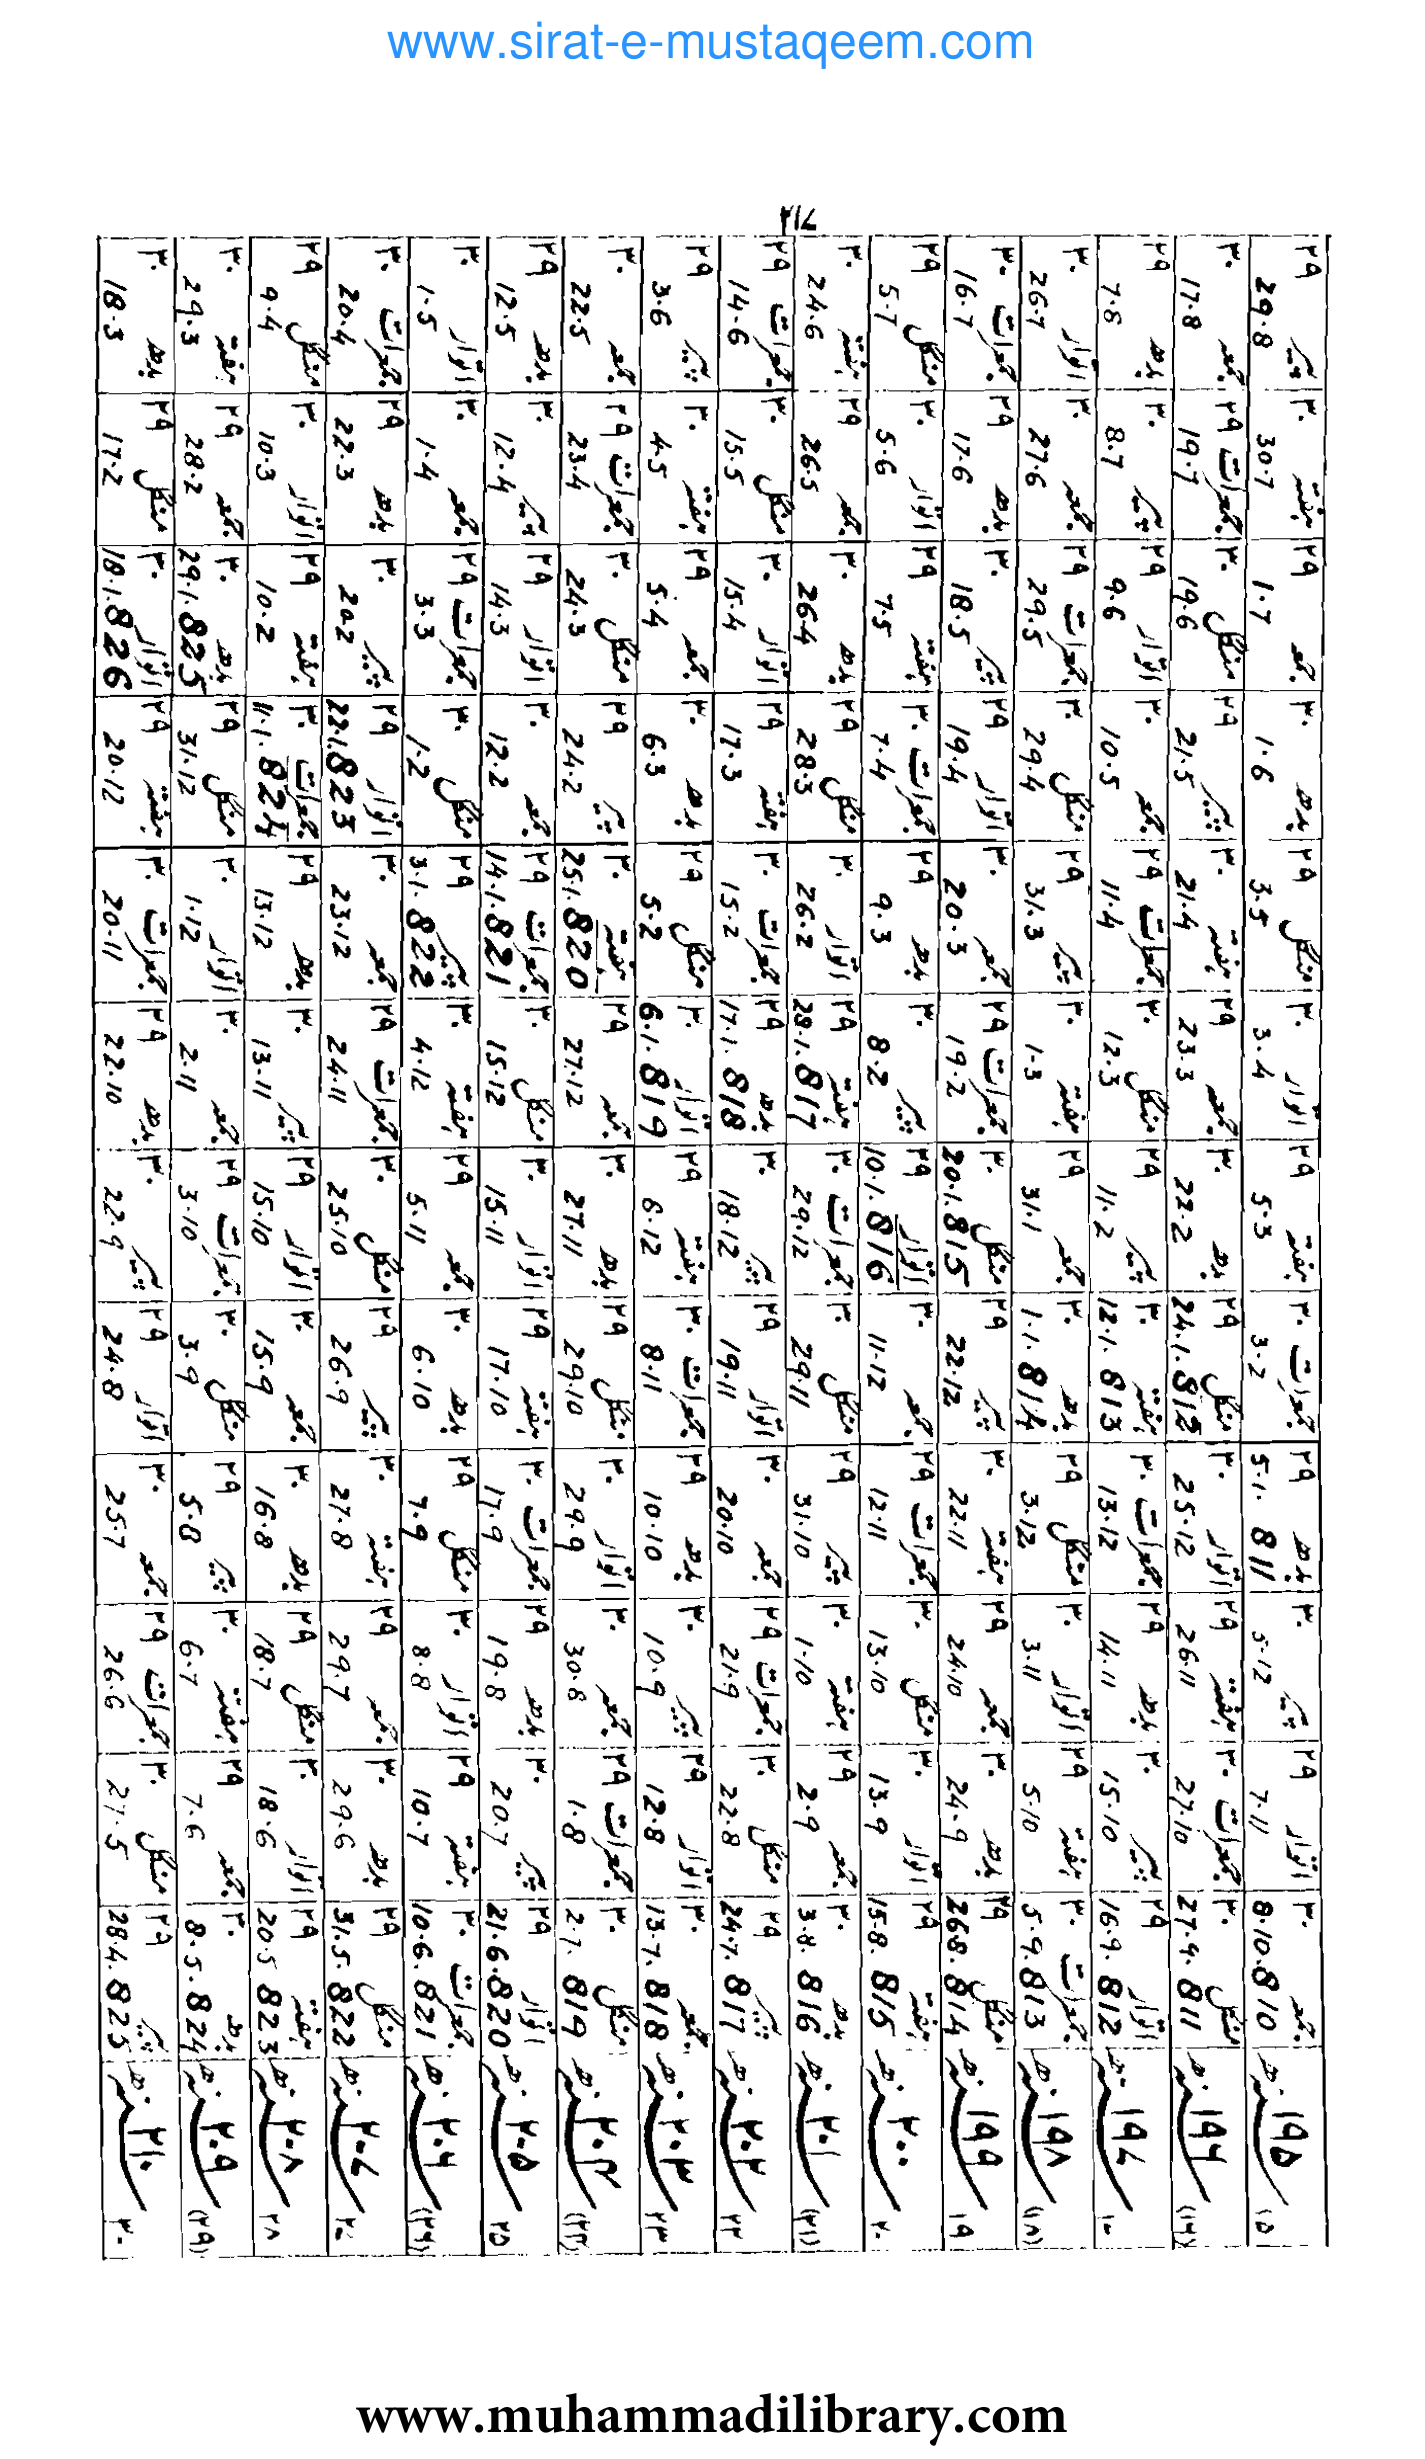 www.sirat-e-mustaqeem.com
۱۵ ۱۹۵ھ جمعہ ۳۰ 8.10.810 اتوار ۲۹ 7.11 پیر ۳۰ 5.12 بدھ ۲۹ 5.1.811 جمعرات ۳۰ 3.2 ہفتہ ۲۹ 5.3 اتوار ۳۰ 3.4 منگل ۲۹ 3.5 بدھ ۳۰ 1.6 جمعہ ۲۹ 1.7 ہفتہ ۳۰ 30.7 پیر ۲۹ 29.8
(۱۶) ۱۹۶ھ منگل ۳۰ 27.9.811 جمعرات ۳۰ 27.10 ہفتہ ۲۹ 26.11 اتوار ۳۰ 25.12 منگل ۲۹ 24.1.812 بدھ ۳۰ 22.2 جمعہ ۲۹ 23.3 ہفتہ ۳۰ 21.4 پیر ۲۹ 21.5 منگل ۳۰ 19.6 جمعرات ۲۹ 19.7 جمعہ ۳۰ 17.8
۱۷ ۱۹۷ھ اتوار ۲۹ 16.9.812 پیر ۳۰ 15.10 بدھ ۲۹ 14.11 جمعرات ۳۰ 13.12 ہفتہ ۳۰ 12.1.813 پیر ۲۹ 11.2 منگل ۳۰ 12.3 جمعرات ۲۹ 11.4 جمعہ ۳۰ 10.5 اتوار ۲۹ 9.6 پیر ۳۰ 8.7 بدھ ۲۹ 7.8
(۱۸) ۱۹۸ھ جمعرات ۳۰ 5.9.813 ہفتہ ۲۹ 5.10 اتوار ۳۰ 3.11 منگل ۲۹ 3.12 بدھ ۳۰ 1.1.814 جمعہ ۲۹ 31.1 ہفتہ ۳۰ 1.3 پیر ۲۹ 31.3 منگل ۳۰ 29.4 جمعرات ۲۹ 29.5 جمعہ ۳۰ 27.6 اتوار ۳۰ 26.7
۱۹ ۱۹۹ھ منگل ۲۹ 26.8.814 بدھ ۳۰ 24.9 جمعہ ۲۹ 24.10 ہفتہ ۳۰ 22.11 پیر ۲۹ 22.12 منگل ۳۰ 20.1.815 جمعرات ۲۹ 19.2 جمعہ ۳۰ 20.3 اتوار ۲۹ 19.4 پیر ۳۰ 18.5 بدھ ۲۹ 17.6 جمعرات ۳۰ 16.7
۲۰ ۲۰۰ھ ہفتہ ۲۹ 15.8.815 اتوار ۳۰ 13.9 منگل ۳۰ 13.10 جمعرات ۲۹ 12.11 جمعہ ۳۰ 11.12 اتوار ۲۹ 10.1.816 پیر ۳۰ 8.2 بدھ ۲۹ 9.3 جمعرات ۳۰ 7.4 ہفتہ ۲۹ 7.5 اتوار ۳۰ 5.6 منگل ۲۹ 5.7
(۲۱) ۲۰۱ھ بدھ ۳۰ 3.8.816 جمعہ ۲۹ 2.9 ہفتہ ۳۰ 1.10 پیر ۲۹ 31.10 منگل ۳۰ 29.11 جمعرات ۳۰ 29.12 ہفتہ ۲۹ 28.1.817 اتوار ۳۰ 26.2 منگل ۲۹ 28.3 بدھ ۳۰ 26.4 جمعہ ۲۹ 26.5 ہفتہ ۳۰ 24.6
۲۲ ۲۰۲ھ پیر ۲۹ 24.7.817 منگل ۳۰ 22.8 جمعرات ۲۹ 21.9 جمعہ ۳۰ 20.10 اتوار ۲۹ 19.11 پیر ۳۰ 18.12 بدھ ۲۹ 17.1.818 جمعرات ۳۰ 15.2 ہفتہ ۲۹ 17.3 اتوار ۳۰ 15.4 منگل ۳۰ 15.5 جمعرات ۲۹ 14.6
۲۳ ۲۰۳ھ جمعہ ۳۰ 13.7.818 اتوار ۲۹ 12.8 پیر ۳۰ 10.9 بدھ ۲۹ 10.10 جمعرات ۳۰ 8.11 ہفتہ ۲۹ 8.12 اتوار ۳۰ 6.1.819 منگل ۲۹ 5.2 بدھ ۳۰ 6.3 جمعہ ۲۹ 5.4 ہفتہ ۳۰ 4.5 پیر ۲۹ 3.6
(۲۴) ۲۰۴ھ منگل ۳۰ 2.7.819 جمعرات ۲۹ 1.8 جمعہ ۳۰ 30.8 اتوار ۳۰ 29.9 منگل ۲۹ 29.10 بدھ ۳۰ 27.11 جمعہ ۲۹ 27.12 ہفتہ ۳۰ 25.1.820 پیر ۲۹ 24.2 منگل ۳۰ 24.3 جمعرات ۲۹ 23.4 جمعہ ۳۰ 22.5
۲۵ ۲۰۵ھ اتوار ۲۹ 21.6.820 پیر ۳۰ 20.7 بدھ ۲۹ 19.8 جمعرات ۳۰ 17.9 ہفتہ ۲۹ 17.10 اتوار ۳۰ 15.11 منگل ۳۰ 15.12 جمعرات ۲۹ 14.1.821 جمعہ ۳۰ 12.2 اتوار ۲۹ 14.3 پیر ۳۰ 12.4 بدھ ۲۹ 12.5
(۲۶) ۲۰۶ھ جمعرات ۳۰ 10.6.821 ہفتہ ۲۹ 10.7 اتوار ۳۰ 8.8 منگل ۲۹ 7.9 بدھ ۳۰ 6.10 جمعہ ۲۹ 5.11 ہفتہ ۳۰ 4.12 پیر ۲۹ 3.1.822 منگل ۳۰ 1.2 جمعرات ۲۹ 3.3 جمعہ ۳۰ 1.4 اتوار ۳۰ 1.5
۲۷ ۲۰۷ھ منگل ۲۹ 31.5.822 بدھ ۳۰ 29.6 جمعہ ۲۹ 29.7 ہفتہ ۳۰ 27.8 پیر ۲۹ 26.9 منگل ۳۰ 25.10 جمعرات ۲۹ 24.11 جمعہ ۳۰ 23.12 اتوار ۲۹ 22.1.823 پیر ۳۰ 20.2 بدھ ۲۹ 22.3 جمعرات ۳۰ 20.4
۲۸ ۲۰۸ھ ہفتہ ۲۹ 20.5.823 اتوار ۳۰ 18.6 منگل ۲۹ 18.7 بدھ ۳۰ 16.8 جمعہ ۳۰ 15.9 اتوار ۲۹ 15.10 پیر ۳۰ 13.11 بدھ ۲۹ 13.12 جمعرات ۳۰ 11.1.824 ہفتہ ۲۹ 10.2 اتوار ۳۰ 10.3 منگل ۲۹ 9.4
(۲۹) ۲۰۹ھ بدھ ۳۰ 8.5.824 جمعہ ۲۹ 7.6 ہفتہ ۳۰ 6.7 پیر ۲۹ 5.8 منگل ۳۰ 3.9 جمعرات ۲۹ 3.10 جمعہ ۳۰ 2.11 اتوار ۳۰ 1.12 منگل ۲۹ 31.12 بدھ ۳۰ 29.1.825 جمعہ ۲۹ 28.2 ہفتہ ۳۰ 29.3
۳۰ ۲۱۰ھ پیر ۲۹ 28.4.825 منگل ۳۰ 27.5 جمعرات ۲۹ 26.6 جمعہ ۳۰ 25.7 اتوار ۲۹ 24.8 پیر ۳۰ 22.9 بدھ ۲۹ 22.10 جمعرات ۳۰ 20.11 ہفتہ ۲۹ 20.12 اتوار ۳۰ 18.1.826 منگل ۲۹ 17.2 بدھ ۳۰ 18.3
www.muhammadilibrary.com